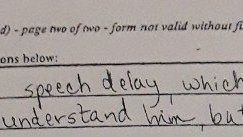 d) - page two of two - form not valid without fi
ons below:
speech delay, which
understand him, but